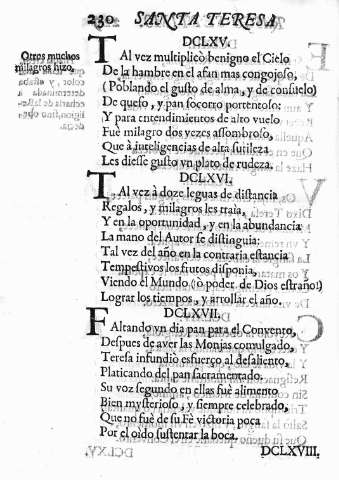 230 SANTA TERESA
Otros muchos
milagros hizo.
DCLXV.
Tal vez multiplicò benigno el Cielo
De la hambre en el afan mas congojoso,
(Poblando el gusto de alma, y de consuelo)
De queso, y pan socorro portentoso:
Y para entendimientos de alto vuelo
Fuè milagro dos vezes assombroso,
Que à inteligencias de alta sutileza
Les diesse gusto vn plato de rudeza.
DCLXVI.
Tal vez à doze leguas de distancia
Regalos, y milagros les traìa,
Y en la oportunidad, y en la abundancia
La mano del Autor se distinguia:
Tal vez del año en la contraria estancia
Tempestivos los frutos disponia,
Viendo el Mundo (ò poder de Dios estraño!)
Lograr los tiempos, y arrollar el año.
DCLXVII.
Faltando vn dia pan para el Convento,
Despues de aver las Monjas comulgado,
Teresa infundiò esfuerço al desaliento,
Platicando del pan sacramentado:
Su voz segundo en ellas fuè alimento
Bien mysterioso, y siempre celebrado,
Que no fuè de su Fè victoria poca
Por el oìdo sustentar la boca.
DCLXVIII.